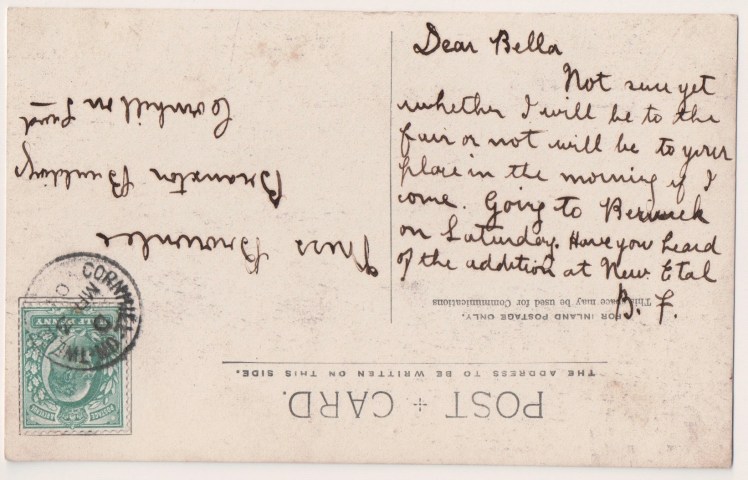 Dear Bella
Not sure yet
whether I will be to the
fair or not will be to your
place in the morning if I
come. Going to Berwick
on Saturday. Have you heard
of the addition at New Etal
B. F.
POST + CARD.
THE ADDRESS TO BE WRITTEN ON THIS SIDE.
FOR INLAND POSTAGE ONLY.
This space may be used for Communications
Miss Brownlee
Branxton Buildings
Cornhill on Tweed
CORNHILL-ON-TWEED
MR
POSTAGE
HALFPENNY